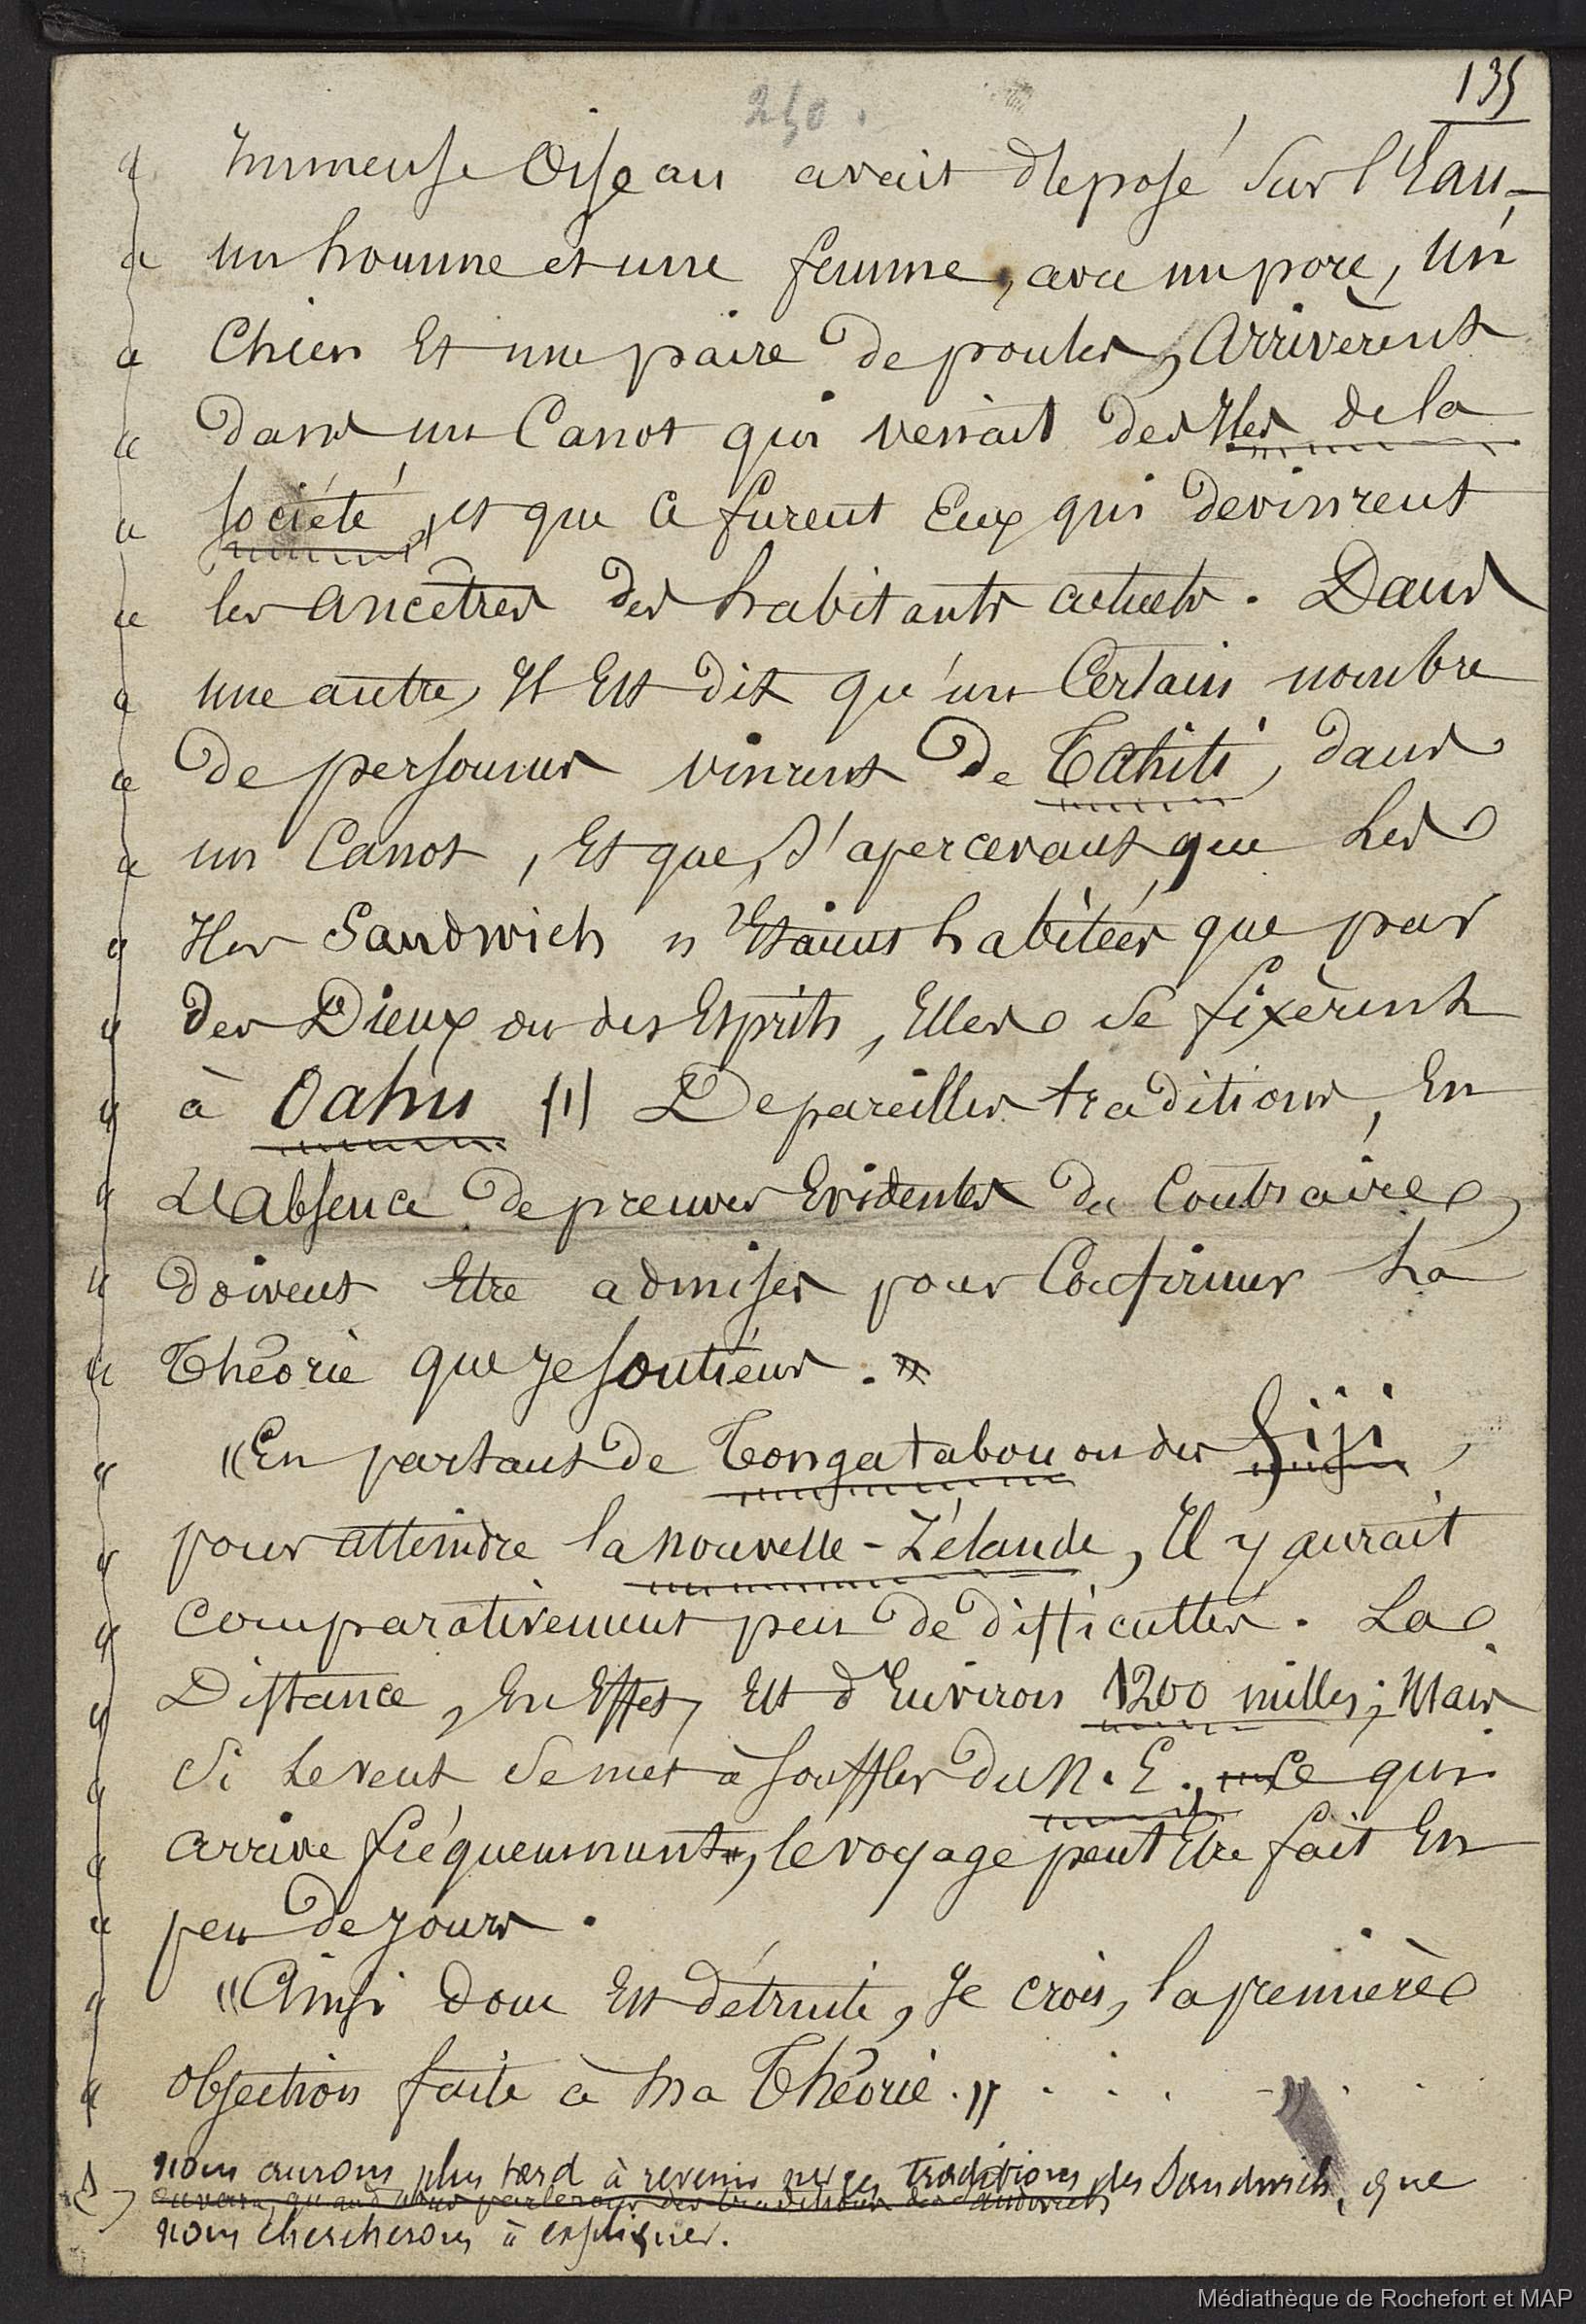 135
240.
« Immense Oiseau avait déposé sur l'Eau,
« un homme et une femme, avec un porc, un
« Chien Et une paire de poules, Arrivèrent
« dans un Canot qui venait des Iles de la
« société, et que Ce furent Eux qui devinrent
« les ancêtres des habitants actuels. Dans
« une autre, Il Est dit qu'un Certain nombre
« de personnes vinrent de Tahiti, dans
« un Canot, Et que, s'apercevant que Les
« Iles Sandwich n'Etaient habitées que par
« des Dieux ou des Esprits, Elles se fixèrent
« à Oahu (1) De pareilles traditions, En
« L'Absence de preuves Evidentes du Contraire,
« doivent Etre admises pour Confirmer La
« Théorie que Je soutiens. »
« "En partant de Tongatabou ou des Fiji,
« pour atteindre la Nouvelle-Zélande, Il y aurait
« Comparativement peu de difficultés. La
« Distance, En Effet, Est d'Environ 1200 milles; Mais
« Si Le vent Se met à Souffler du N. E., Ce qui
« arrive fréquemment, le voyage peut Etre fait En
« peu de Jours.
« "Ainsi donc Est détruite, Je crois, la première
« objection faite à Ma Théorie. » . . . - » . . .
1) nous aurons plus tard à revenir sur ces traditions des Sandwich, que
nous chercherons à expliquer.
Médiathèque de Rochefort et MAP